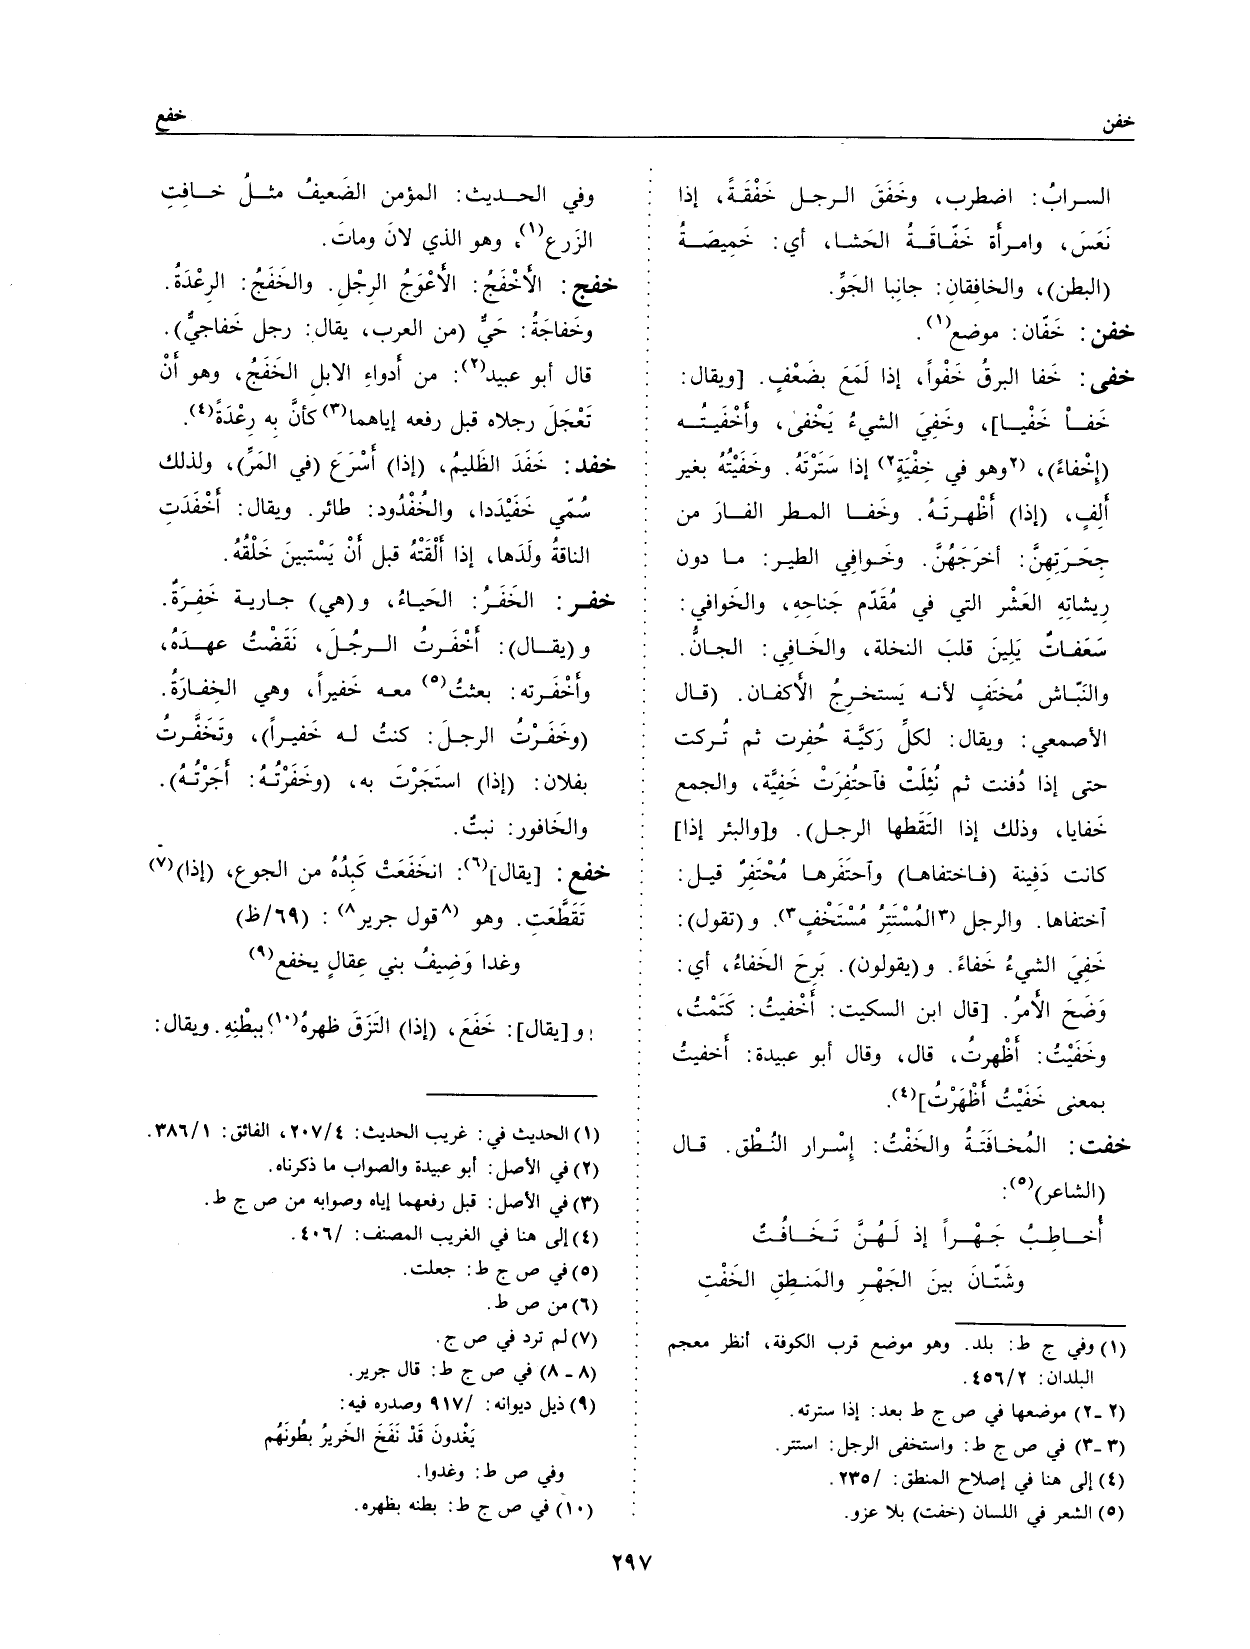 خفن
خفع
السرابُ: اضطرب، وخَفَقَ الرجل خَفْقَةً، إذا
نَعَسَ، وامرأة خَفّاقَةُ الحَشا، أي: خَمِيصَةُ
(البطن)، والخافِقان: جانبا الجَوِّ.
خفن: خَفّان: موضع(١).
خفى: خَفا البرقُ خَفْواً، إذا لَمَعَ بضَعْفٍ. [ويقال:
خَفأ خَفْيا]، وخَفِيَ الشيءُ يَخْفى، وأَخْفَيتُه
(إخْفاءً)، (٢وهو في خِفْيَةٍ٢) إذا سَتَرْتَهُ. وخَفَيْتُهُ بغير
أَلِفٍ، (إذا) أَظْهرتَهُ. وخَفا المطر الفارَ من
جِحَرَتِهِنَّ: أخرَجَهُنَّ. وخَوافي الطير: ما دون
ريشاتِهِ العَشْر التي في مُقَدّم جَناحِهِ، والخَوافي:
سَعَفاتٌ يَلِينَ قلبَ النخلة، والخَافِي: الجانُّ.
والنَّبّاش مُختَفٍ لأنه يَستخرِجُ الأكفان. (قال
الأصمعي: ويقال: لكلِّ رَكيَّة حُفِرت ثم تُركت
حتى إذا دُفنت ثم نُثِلَتْ فآحتُفِرَتْ خَفِيَّة، والجمع
خَفايا، وذلك إذا التَقَطها الرجل). و[والبئر إذا]
كانت دَفِينة (فاختفاها) وآحتَفَرها مُحْتَفِرٌ قيل:
آختفاها. والرجل (٣المُسْتَتِرُ مُسْتَخْفٍ٣). و (تقول):
خَفِيَ الشيءُ خَفاءً. و (يقولون). بَرِحَ الخَفاءُ، أي:
وَضَحَ الأَمرُ. [قال ابن السكيت: أَخْفيتُ: كَتَمْتُ،
وخَفَيْتُ: أَظْهرتُ، قال، وقال أبو عبيدة: أَخفيتُ
بمعنى خَفَيْتُ أَظْهَرْتُ](٤).
خفت: المُخافَتَةُ والخَفْتُ: إسْرار النُطْق. قال
(الشاعر)(٥):
أُخاطِبُ جَهْراً إذ لَهُنَّ تَخَافُتٌ
وشَتّانَ بينَ الجَهْرِ والمَنطِقِ الخَفْتِ
(١) وفي ج ط: بلد. وهو موضع قرب الكوفة، أنظر معجم
البلدان: ٤٥٦/٢.
(٢ -٢) موضعها في ص ج ط بعد: إذا سترته.
(٣ -٣) في ص ج ط: واستخفى الرجل: استتر.
(٤) إلى هنا في إصلاح المنطق: /٢٣٥.
(٥) الشعر في اللسان (خفت) بلا عزو.
وفي الحديث: المؤمن الضَعيفُ مثلُ خافِتِ
الزَرع(١)، وهو الذي لانَ وماتَ.
خفج: الأَخْفَجُ: الأَعْوَجُ الرِجْل. والخَفَجُ: الرِعْدَةُ.
وخَفاجَةُ: حَيٌّ (من العرب، يقال: رجل خَفاجيٌّ).
قال أبو عبيد(٢): من أَدواءِ الابل الخَفَجُ، وهو أنْ
تَعْجَلَ رجلاه قبل رفعه إياهما(٣) كأنَّ به رِعْدَةً(٤).
خفد: خَفَدَ الظَليمُ، (إذا) أَسْرَعَ (في المَرِّ)، ولذلك
سُمّي خَفَيْدَدا، والخُفْدُود: طائر. ويقال: أَخْفَدَتِ
الناقةُ ولَدَها، إذا أَلْقَتْهُ قبل أنْ يَسْتبينَ خَلْقُهُ.
خفر: الخَفَرُ: الحَياءُ، و (هي) جارية خَفِرَةٌ.
و (يقال): أَخْفَرتُ الرجُلَ، نَقَضْتُ عهدَهُ،
وأَخْفَرته: بعثتُ(٥) معه خَفيراً، وهي الخِفارَةُ.
(وخَفَرْتُ الرجلَ: كنتُ له خَفيراً)، وتَخَفَّرتُ
بفلان: (إذا) استَجَرْتَ به، (وخَفَرْتُهُ: أَجَرْتُهُ).
والخَافور: نبتٌ.
خفع: [يقال](٦): انخَفَعَتْ كَبِدُهُ من الجوع، (إذا)(٧)
تَقَطَّعَت. وهو (٨قول جرير٨): (٦٩/ظ)
وغدا وَضِيفُ بني عِقالٍ يخفع(٩)
و [يقال]: خَفَعَ، (إذا) التَزَقَ ظهرهُ(١٠) ببطْنِهِ. ويقال:
(١) الحديث في: غريب الحديث: ٢٠٧/٤، الفائق: ٣٨٦/١.
(٢) في الأصل: أبو عبيدة والصواب ما ذكرناه.
(٣) في الأصل: قبل رفعهما إياه وصوابه من ص ج ط.
(٤) إلى هنا في الغريب المصنف: /٤٠٦.
(٥) في ص ج ط: جعلت.
(٦) من ص ط.
(٧) لم ترد في ص ج.
(٨ - ٨) في ص ج ط: قال جرير.
(٩) ذيل ديوانه: /٩١٧ وصدره فيه:
يَغْدونَ قَدْ نَفَخَ الخَريرُ بطُونَهُم
وفي ص ط: وغدوا.
(١٠) في ص ج ط: بطنه بظهره.
٢٩٧